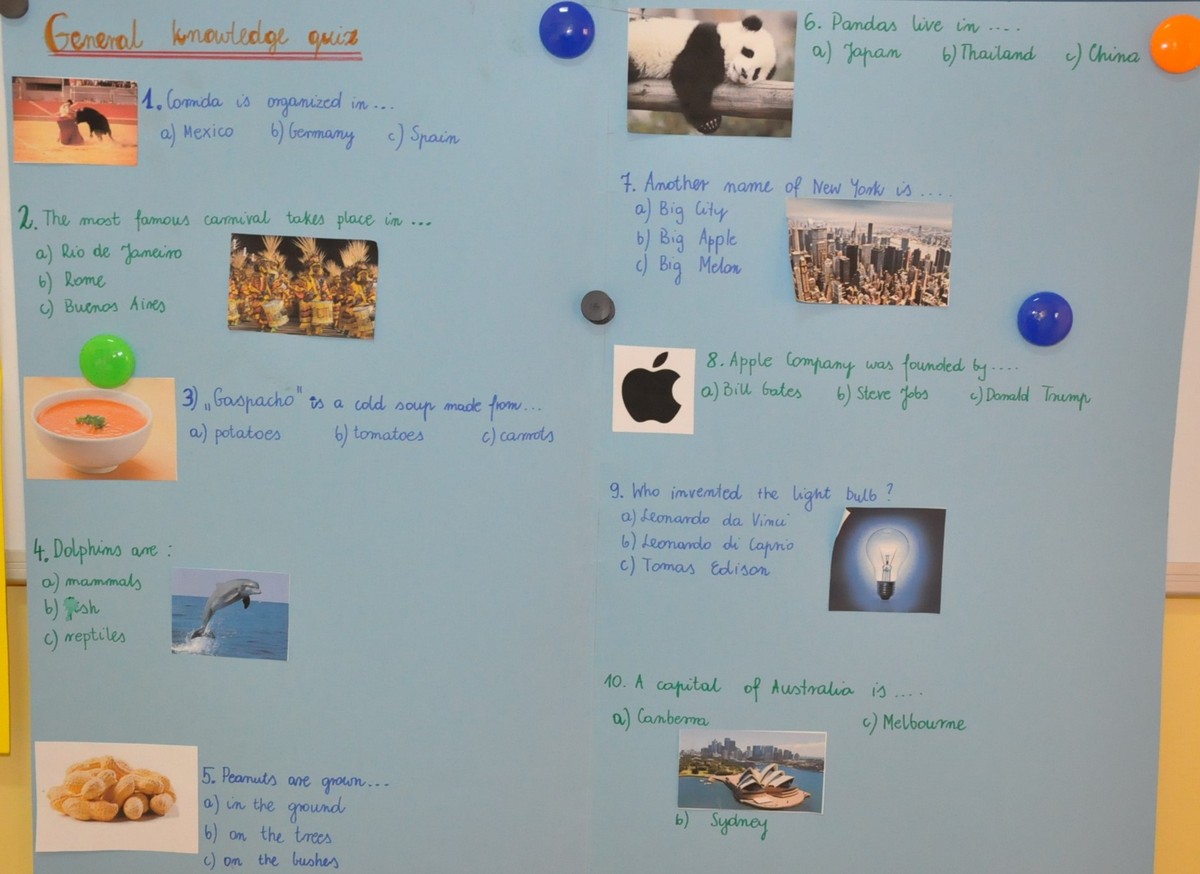 General knowledge quiz
1. Corrida is organized in ...
a) Mexico b) Germany c) Spain
2. The most famous carnival takes place in ...
a) Rio de Janeiro
b) Rome
c) Buenos Aires
3) „Gaspacho" is a cold soup made from...
a) potatoes b) tomatoes c) carrots
4. Dolphins are:
a) mammals
b) fish
c) reptiles
5. Peanuts are grown...
a) in the ground
b) on the trees
c) on the bushes
6. Pandas live in ....
a) Japan b) Thailand c) China
7. Another name of New York is ....
a) Big City
b) Big Apple
c) Big Melon
8. Apple Company was founded by....
a) Bill Gates b) Steve Jobs c) Donald Trump
9. Who invented the light bulb?
a) Leonardo da Vinci
b) Leonardo di Caprio
c) Tomas Edison
10. A capital of Australia is ....
a) Canberra c) Melbourne
b) Sydney